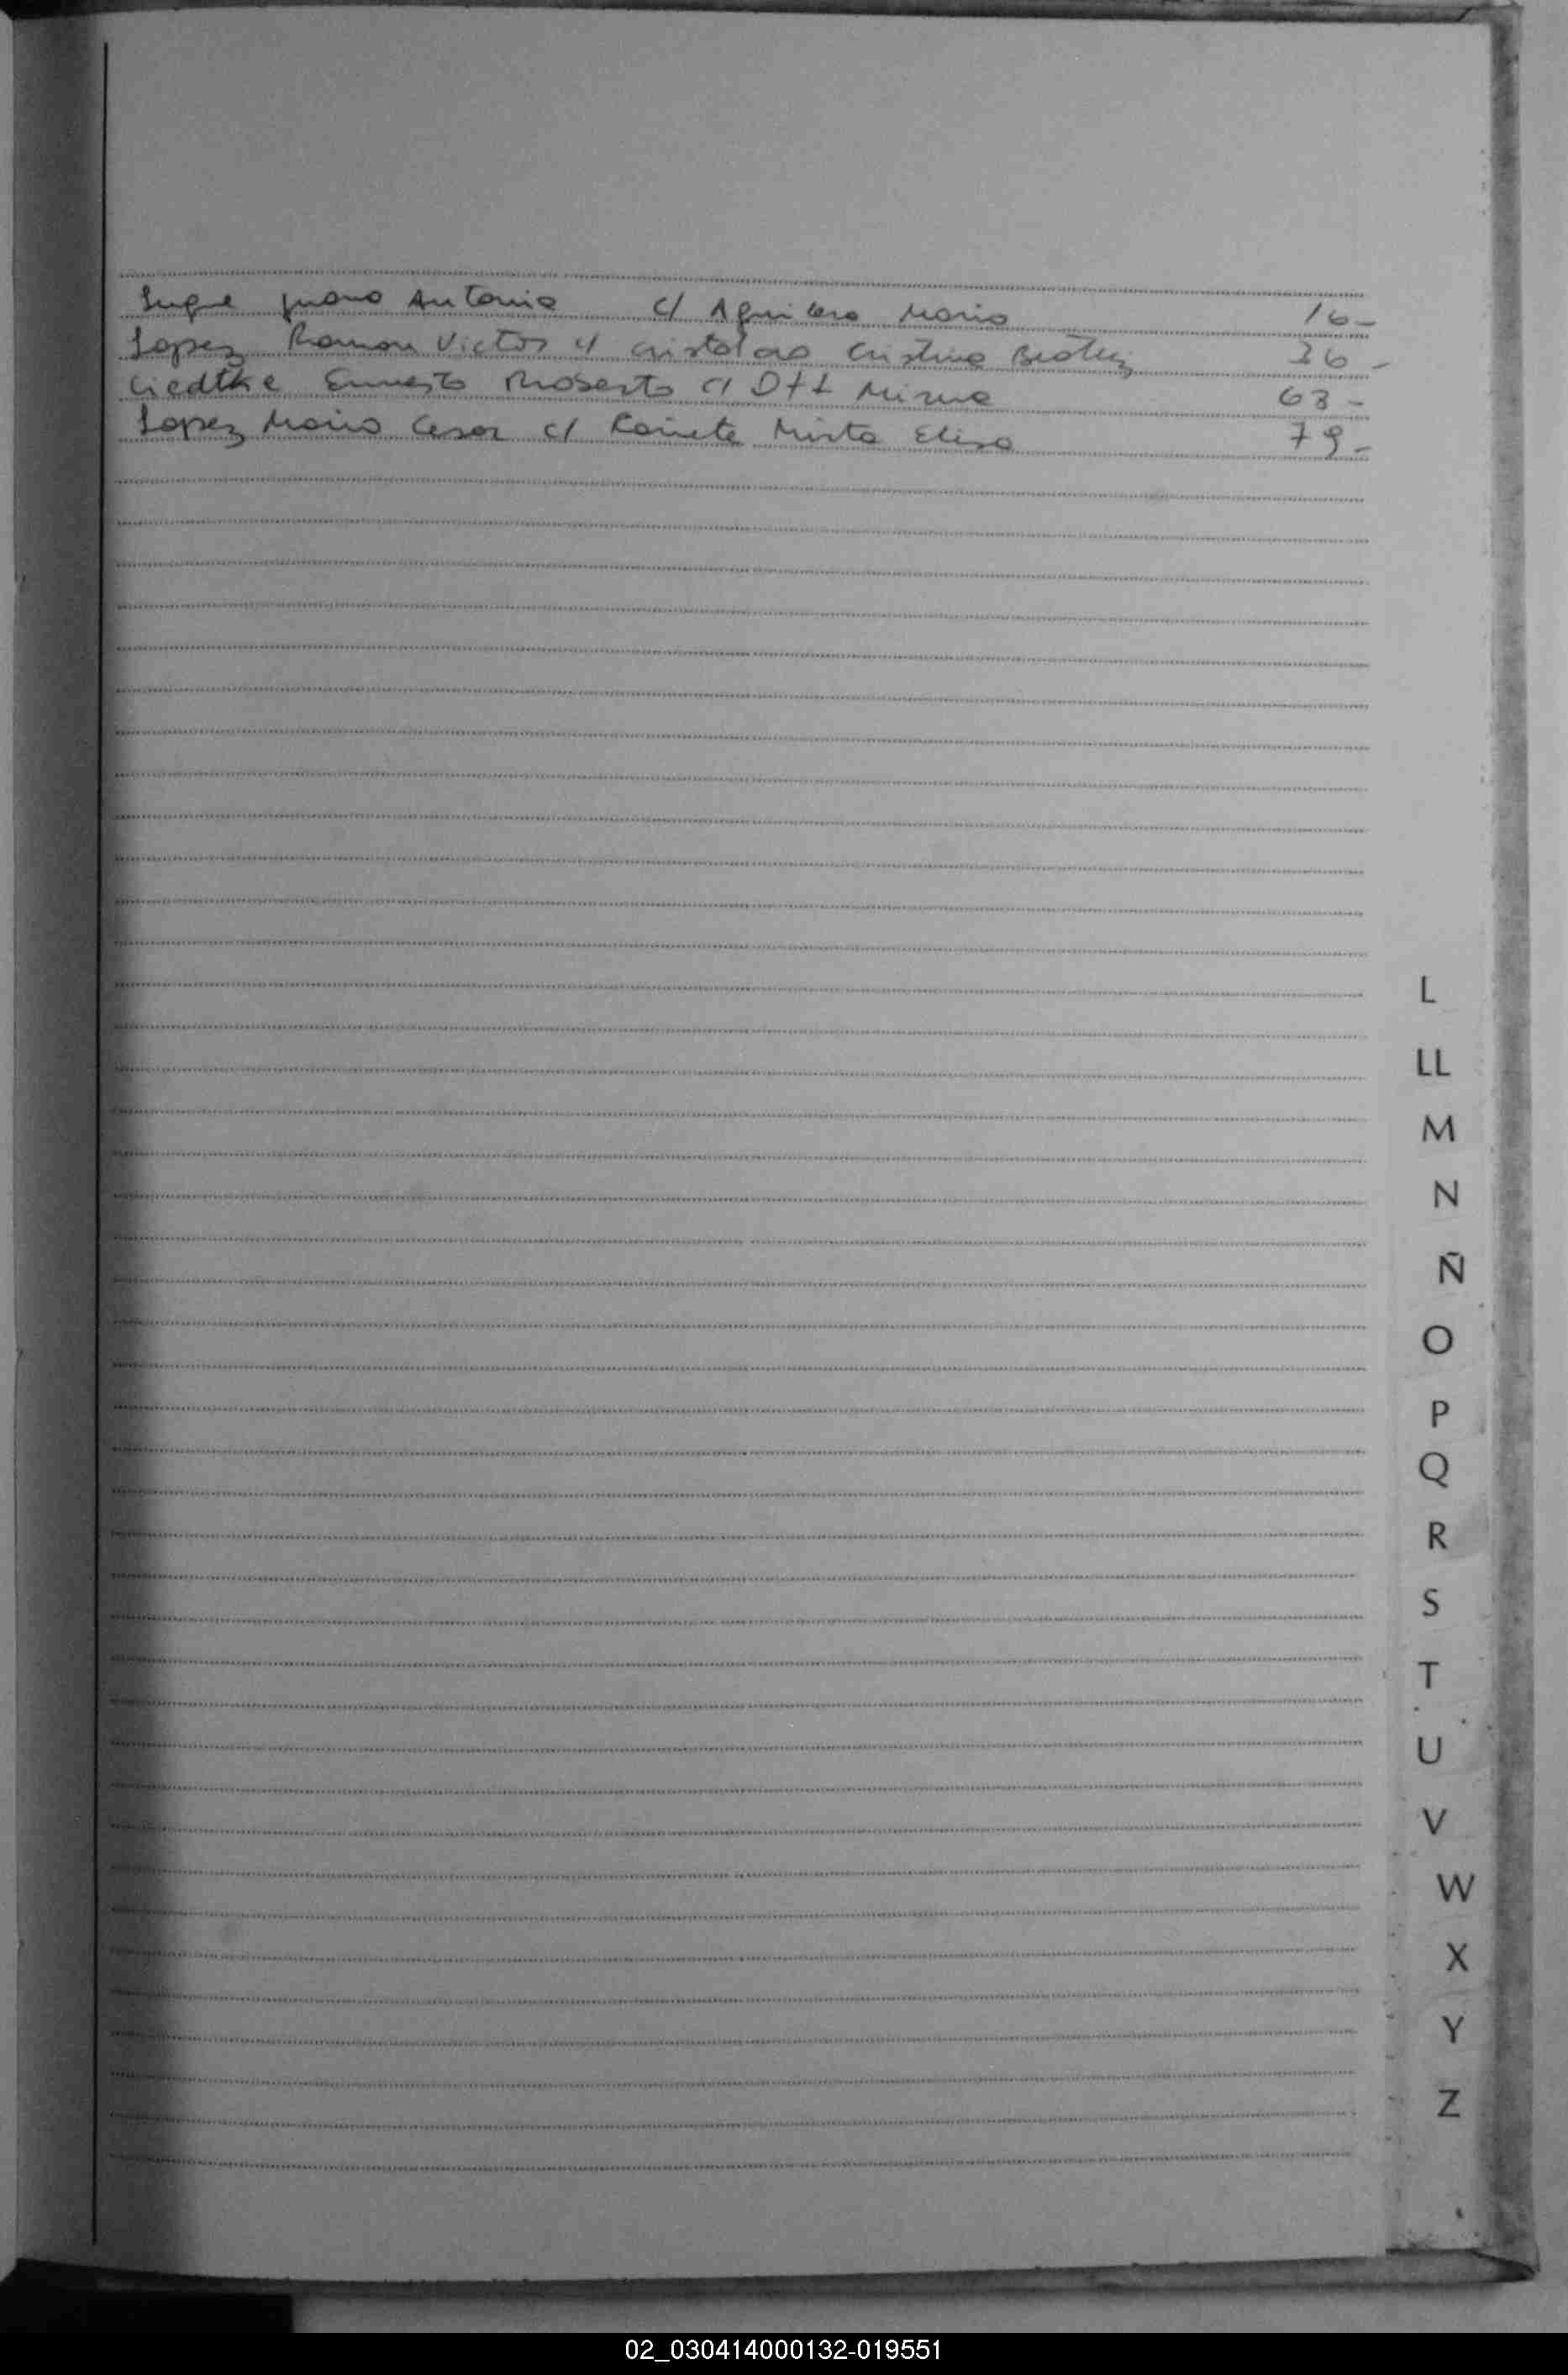 Luque Juana Antonia c/ Aguilera Mario 16-
Lopez Ramon Victor c/ Cristaldo Cristina Beatriz 36-
Liedtke Ernesto Roberto c/ Mirna 63-
Lopez Mario Cesar c/ Mirta Elisa 79-
L
LL
M
N
Ñ
O
P
Q
R
S
T
U
V
W
X
Y
Z
02_030414000132-019551